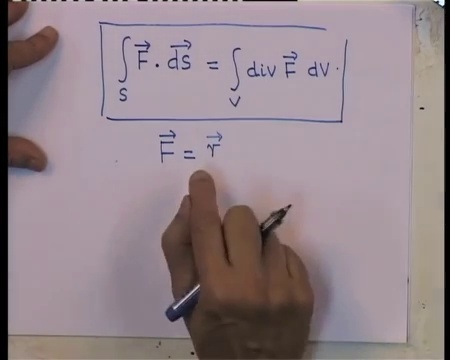 ∫_S F⃗ · dS⃗ = ∫_V div F⃗ dV.
F⃗ = r⃗